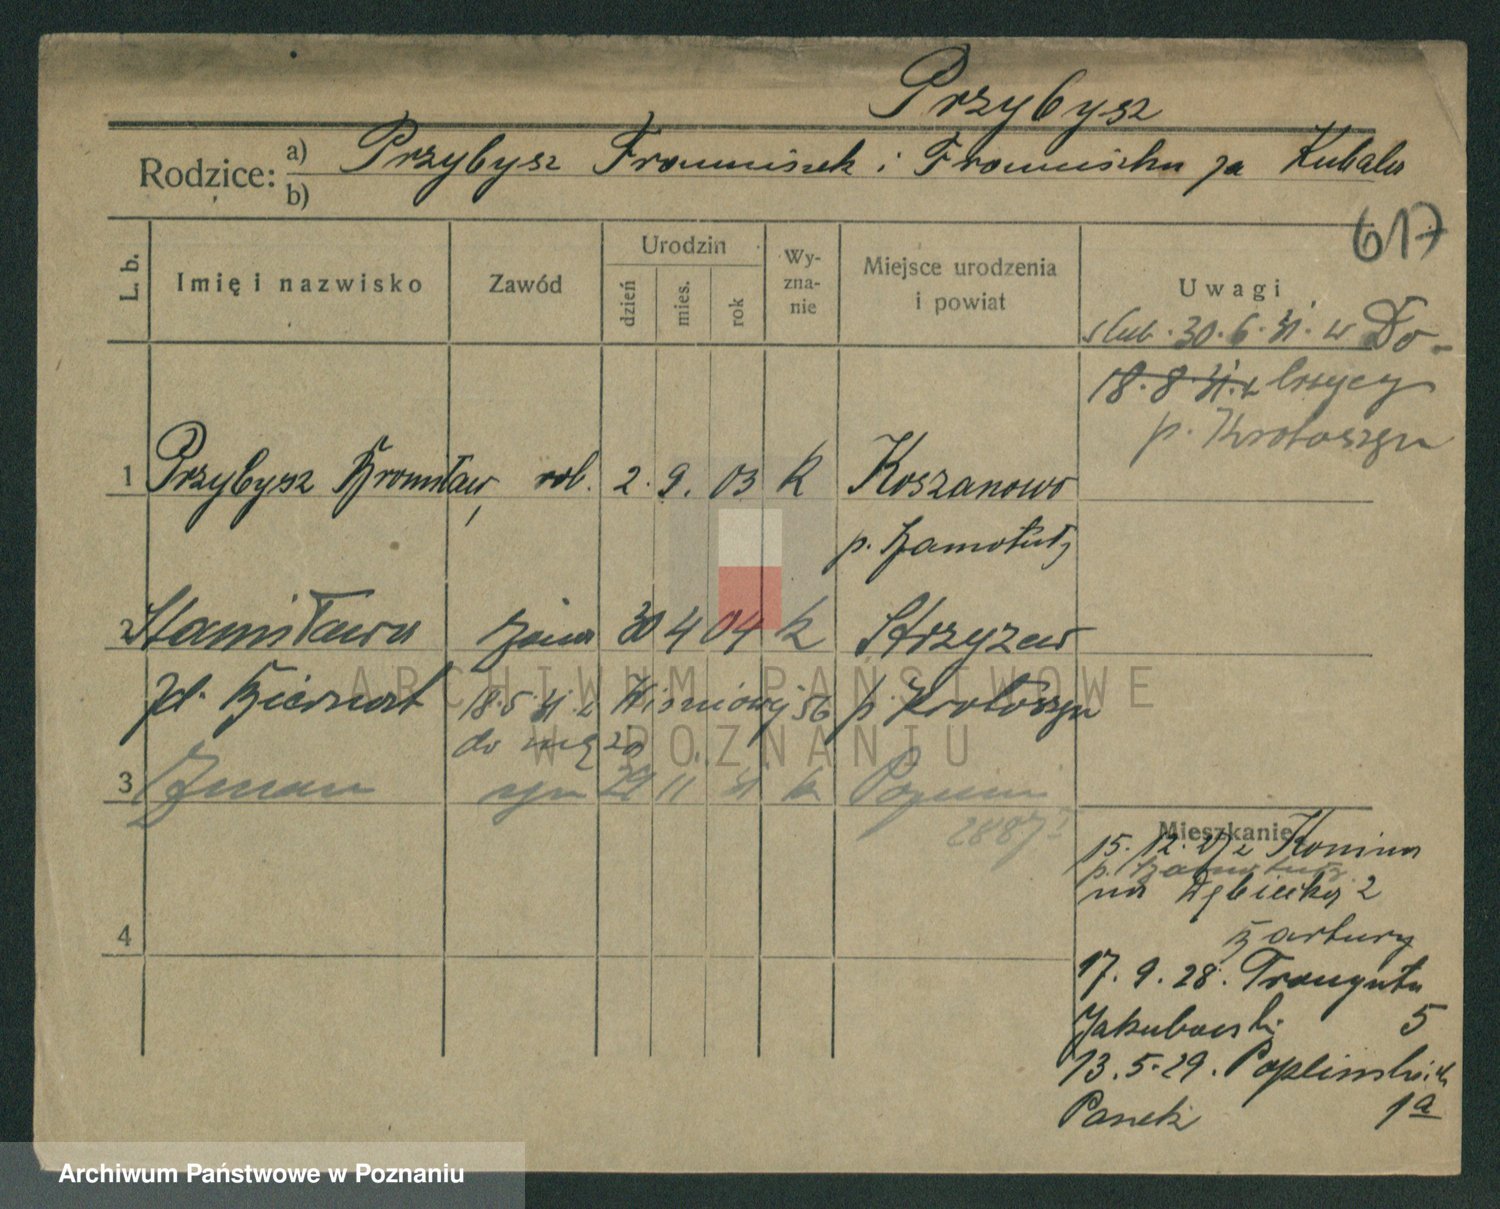 Przybysz
Rodzice: a) b) Przybysz Franciszek i Franciszka za Kubala
617
L. b. Imię i nazwisko Zawód Urodzin dzień mies. rok Wy-zna-nie Miejsce urodzenia i powiat Uwagi
ślub. 30.6.31. w Do-
18.8.31.
p. Krotoszyn
1 Przybysz Bronisław, rob. 2. 9. 03 k Koszanowo
p. Szamotuły
2 Stanisława żona 30 4 04 k Strzyżew
zd. Biernat 18.5.31. z Wiśniowej 56 p. Krotoszyn
do męża
3 Zenon syn 11 31 k Poznań
2887 I
Mieszkanie
15. 12. 27 z Konina
p. Szamotuły
na Dębiecką 2
Bartury
4
17. 9. 28. Traugutta
Jakubowski 5
13. 5. 29. Poplińskich
Panek 1a
ARCHIWUM PAŃSTWOWE
W POZNANIU
Archiwum Państwowe w Poznaniu